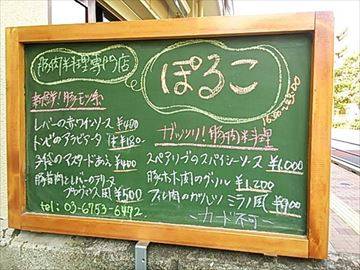 豚肉料理専門店
ぽるこ
新感覚!豚モツ系
レバーの赤ワインソース ¥400
トンビのアラビアータ
子袋のマスタードあえ ¥400
豚背肉とレバーのテリーヌ
¥500
tel: 03-6753-6472
ガッツリ!豚肉料理
スペアリブのスパイシーソース ¥1,000
豚ホホ肉のグリル ¥1,200
フィレ肉のカツレツ ミラノ風 ¥900
カード不可